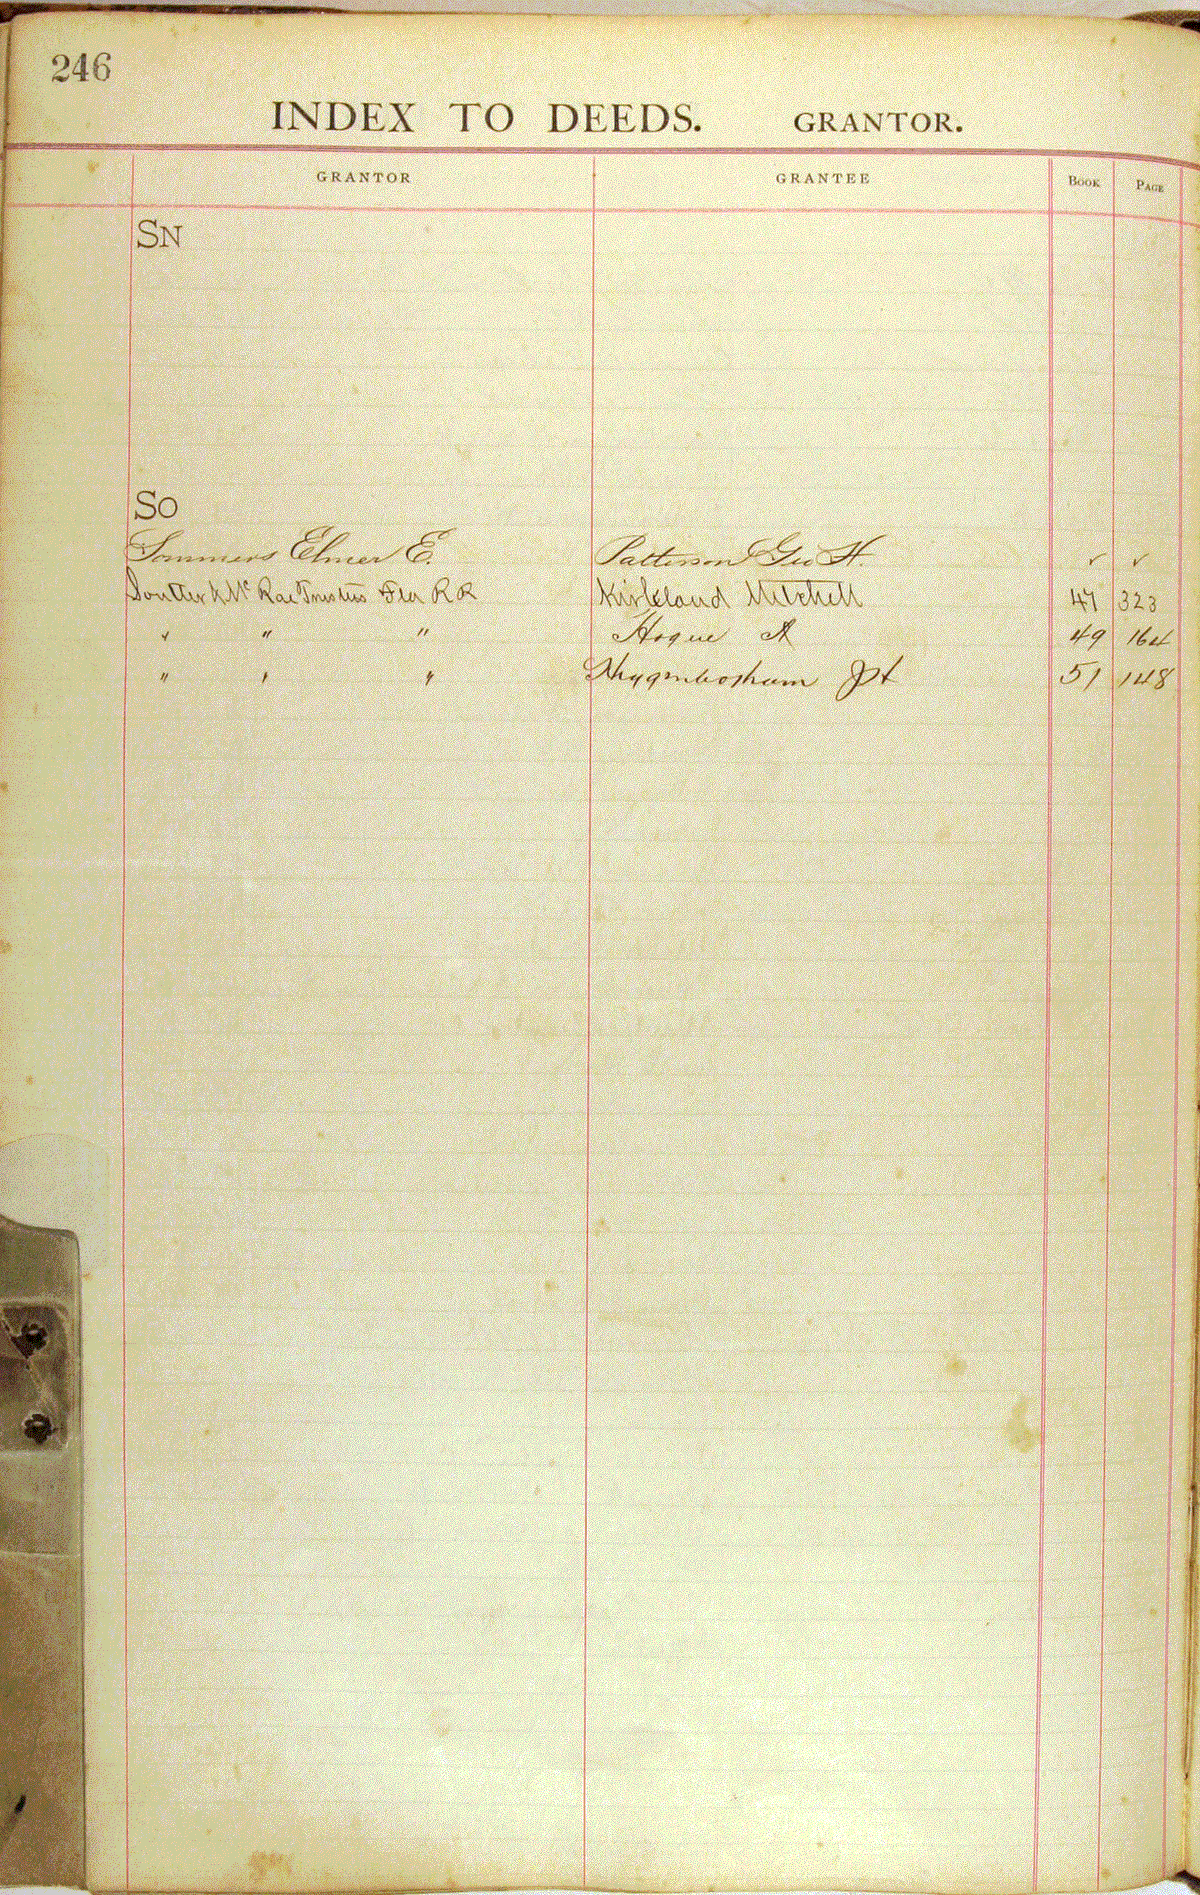 246
INDEX TO DEEDS. GRANTOR.
GRANTOR GRANTEE BOOK PAGE
SN
SO
Sommers Elmer E. Patterson Geo H. ✓ ✓
Soutter & Mc Rae Trustees Fla R R Kirkland Mitchell 47 323
" " " Hogue A 49 164
" " " J H 51 148